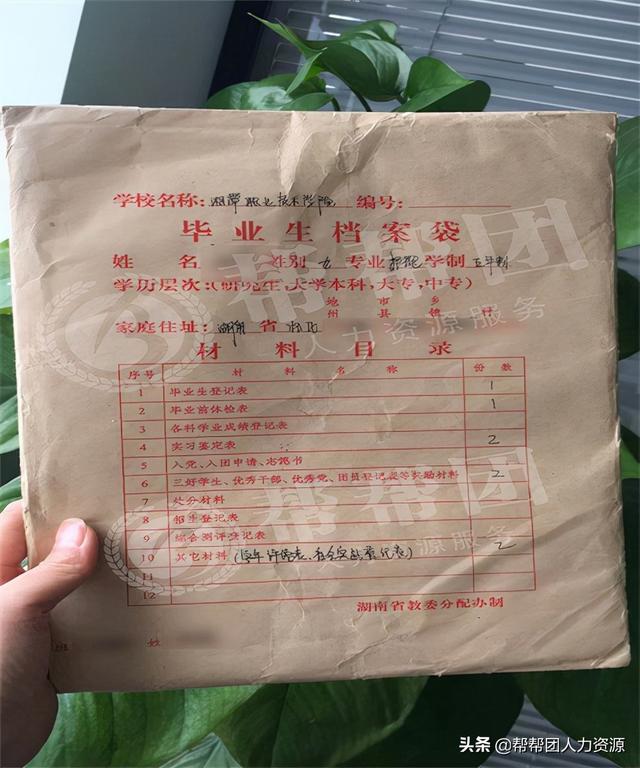 学校名称：湘潭职业技术学院 编号：
毕业生档案袋
姓 名 性别 女 专业 学制 五年制
学历层次：（研究生，大学本科，大专，中专）
地 市 乡
州 县 镇 村
家庭住址： 湖南 省
材料目录
序号 材料名称 份数
1 毕业生登记表 1
2 毕业前体检表 1
3 各科学业成绩登记表
4 实习鉴定表 2
5 入党、入团申请、志愿书
6 三好学生、优秀干部、优秀党、团员登记表等奖励材料 2
7 处分材料
8 招生登记表
9 综合测评登记表
10 其它材料（学年评优表、社会实践登记表） 2
11
12
湖南省教委分配办制
班 姓
帮帮团
人力资源服务
帮帮团
人力资源服务
头条 @帮帮团人力资源